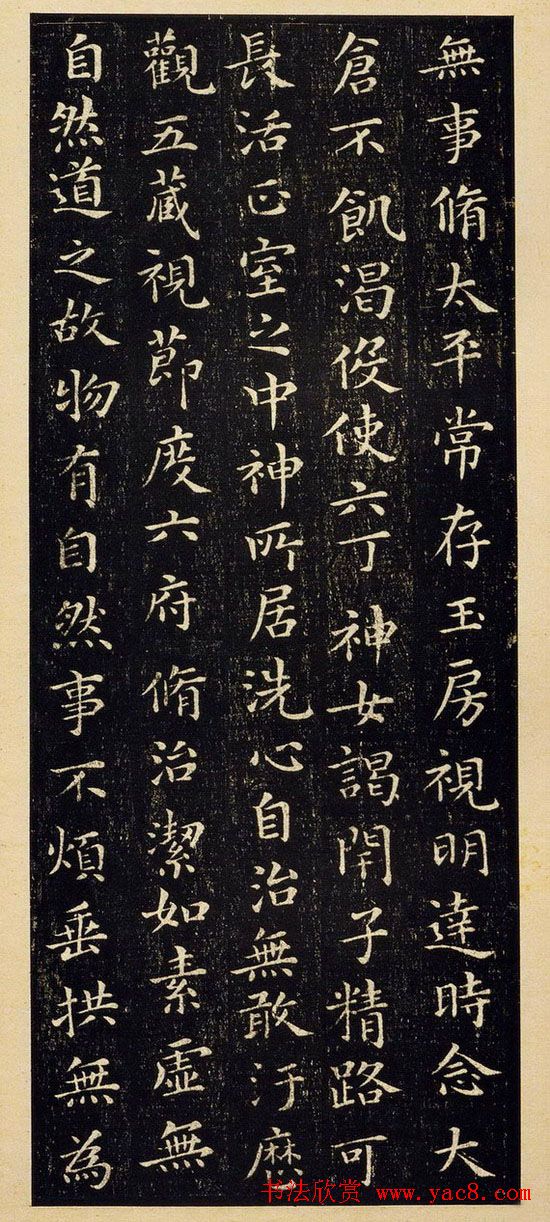 無事脩太平常存玉房視明達時念大
倉不飢渴役使六丁神女謁閇子精路可
長活正室之中神所居洗心自治無敢汙歷
觀五藏視節度六府脩治潔如素虛無
自然道之故物有自然事不煩垂拱無為
书法欣赏 www.yac8.com